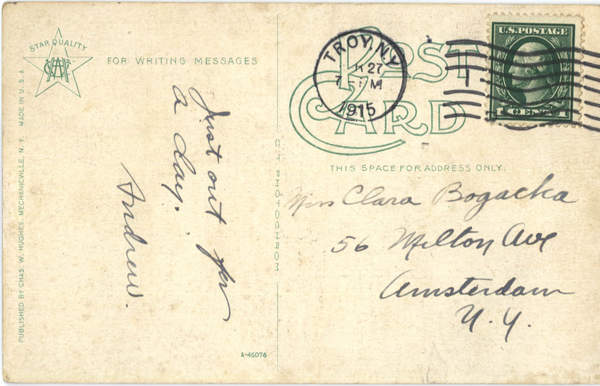 STAR QUALITY
FOR WRITING MESSAGES
POST
CARD
THIS SPACE FOR ADDRESS ONLY.
TROY, N.Y.
27
1915
U.S. POSTAGE
MADE IN U.S.A.
PUBLISHED BY CHAS. W. HUGHES, MECHANICVILLE, N.Y.
Just out for
a day.
Andrew.
Miss Clara Bogacka
56 Milton Ave
Amsterdam
N.Y.
A-46076